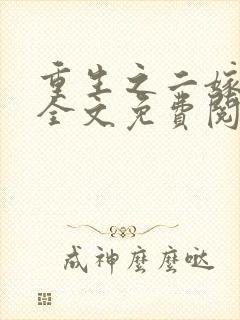 重生之二嫁
全文免費閱
成神麼麼噠